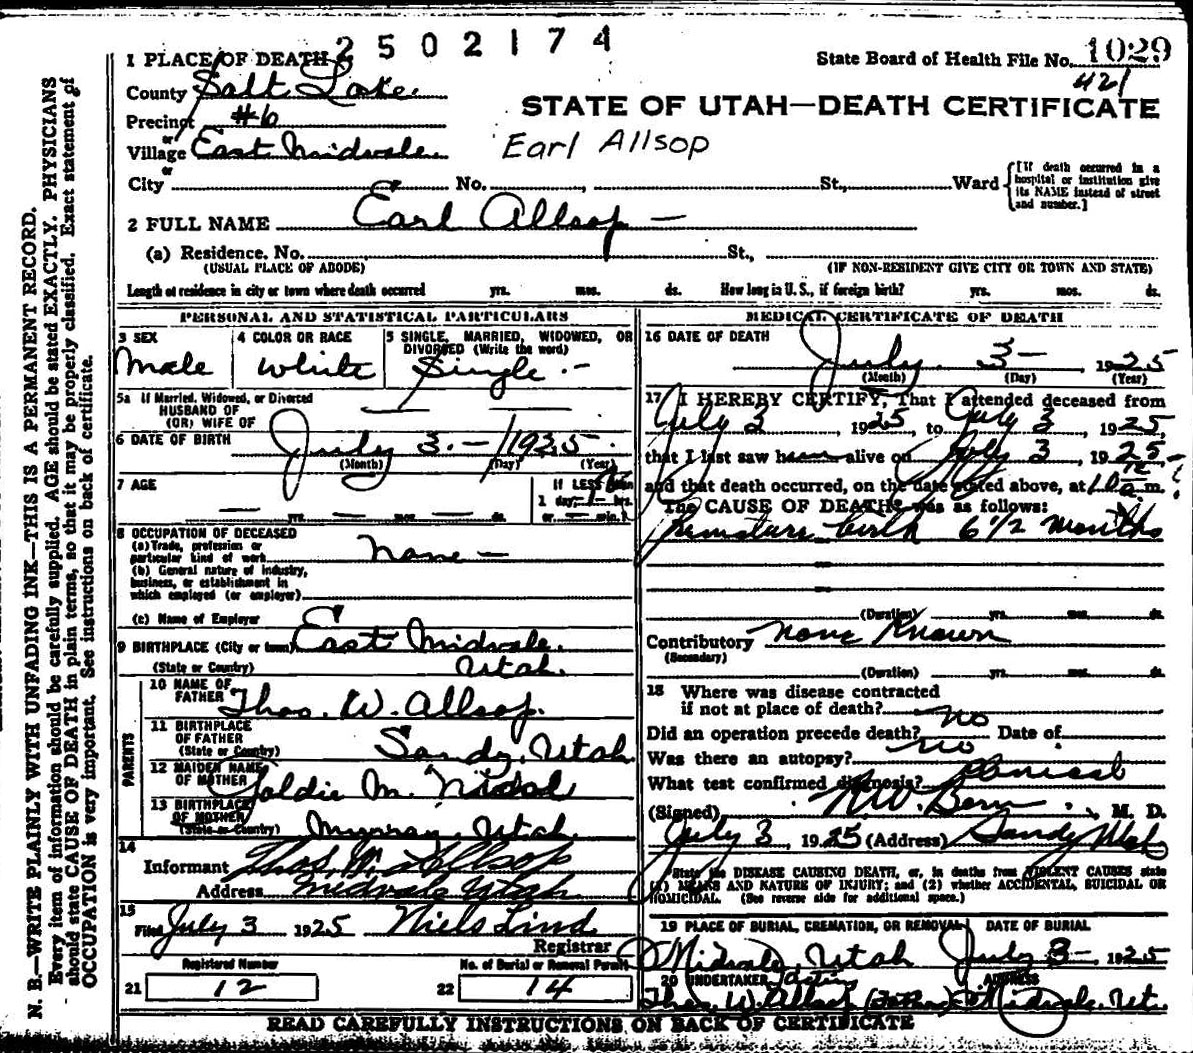 2502174
State Board of Health File No. 1029
421
1 PLACE OF DEATH
County Salt Lake
Precinct #6
or
Village East Midvale
or
City No. , St., Ward
[If death occurred in a hospital or institution give its NAME instead of street and number.]
STATE OF UTAH—DEATH CERTIFICATE
Earl Allsop
2 FULL NAME Earl Allsop —
(a) Residence. No. St.,
(USUAL PLACE OF ABODE) (IF NON-RESIDENT GIVE CITY OR TOWN AND STATE)
Length of residence in city or town where death occurred yrs. mos. ds. How long in U. S., if foreign birth? yrs. mos. ds.
PERSONAL AND STATISTICAL PARTICULARS
3 SEX
Male
4 COLOR OR RACE
White
5 SINGLE, MARRIED, WIDOWED, OR DIVORCED (Write the word)
Single. -
5a If Married, Widowed, or Divorced
HUSBAND OF
(OR) WIFE OF
6 DATE OF BIRTH July 3. — 1925.
(Month) (Day) (Year)
7 AGE
yrs. mos. ds.
If LESS than
1 day, hrs.
or min.
8 OCCUPATION OF DECEASED
(a) Trade, profession or
particular kind of work none —
(b) General nature of industry,
business, or establishment in
which employed (or employer)
(c) Name of Employer
9 BIRTHPLACE (City or town) East Midvale.
(State or Country) Utah.
PARENTS
10 NAME OF FATHER Thos. W. Allsop.
11 BIRTHPLACE OF FATHER
(State or Country) Sandy, Utah
12 MAIDEN NAME OF MOTHER Goldie M.
13 BIRTHPLACE OF MOTHER
(State or Country) Murray, Utah.
14
Informant Thos. W. Allsop
Address Midvale Utah
15
Filed July 3 1925 Niels Lind
Registrar
Registered Number
21 12
No. of Burial or Removal Permit
22 14
MEDICAL CERTIFICATE OF DEATH
16 DATE OF DEATH
July 3— 1925
(Month) (Day) (Year)
17 I HEREBY CERTIFY, That I attended deceased from
July 3 1925, to July 3, 1925,
that I last saw him alive on July 3, 1925
and that death occurred, on the date stated above, at m.
The CAUSE OF DEATH was as follows:
Premature birth 6 1/2 months
(Duration) yrs. mos. ds.
Contributory none Known
(Secondary)
(Duration) yrs. mos. ds.
18 Where was disease contracted
if not at place of death?
Did an operation precede death? no Date of
Was there an autopsy? no
What test confirmed diagnosis?
(Signed) M. D.
July 3, 1925 (Address) Sandy Utah
State the DISEASE CAUSING DEATH, or, in deaths from VIOLENT CAUSES state
(1) MEANS AND NATURE OF INJURY; and (2) whether ACCIDENTAL, SUICIDAL OR
HOMICIDAL. (See reverse side for additional space.)
19 PLACE OF BURIAL, CREMATION, OR REMOVAL
Midvale, Utah
DATE OF BURIAL
July 3— 1925
20 UNDERTAKER, Acting
Thos. W. Allsop (Father)
ADDRESS
Midvale. Ut.
READ CAREFULLY INSTRUCTIONS ON BACK OF CERTIFICATE
N. B.—WRITE PLAINLY WITH UNFADING INK—THIS IS A PERMANENT RECORD.
Every item of information should be carefully supplied. AGE should be stated EXACTLY. PHYSICIANS
should state CAUSE OF DEATH in plain terms, so that it may be properly classified. Exact statement of
OCCUPATION is very important. See instructions on back of certificate.